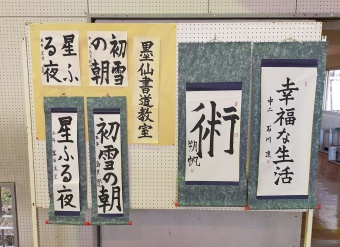 墨仙書道教室
初雪
の朝
星ふ
る夜
初雪の朝
星ふる夜
術
幸福な生活
中二 石川